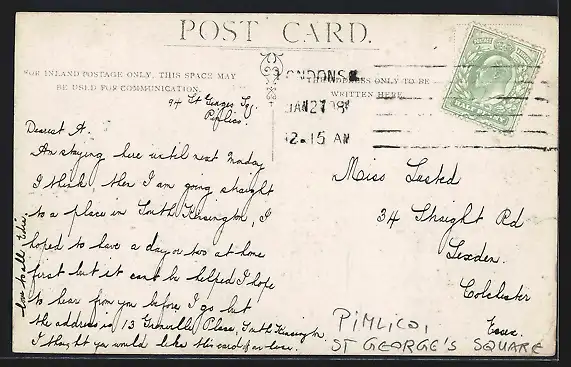 POST CARD.
FOR INLAND POSTAGE ONLY, THIS SPACE MAY
BE USED FOR COMMUNICATION.
THE ADDRESS ONLY TO BE
WRITTEN HERE.
LONDON S.
JAN 27 08
12.15 AM
HALFPENNY
94 St Georges Sq.
Pimlico.
Dearest A.
Am staying here until next Monday
I think, then I am going straight
to a place in South Kensington, I
hoped to have a day or two at home
first but it cant be helped I hope
to hear from you before I go but
the address is, 13 Grenville Place, South Kensington
I thought you would like this card of our
love to all Edie.
Miss Lusted
34 Straight Rd
Lexden.
Colchester
Essex.
PIMLICO,
ST GEORGE'S SQUARE